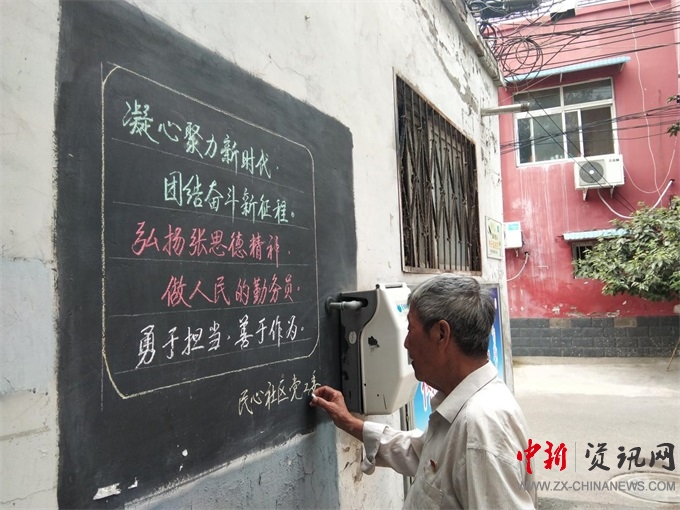 凝心聚力新时代.
团结奋斗新征程。
弘扬张思德精神.
做人民的勤务员。
勇于担当,善于作为。
民心社区党工委
中新资讯网
WWW.ZX-CHINANEWS.COM